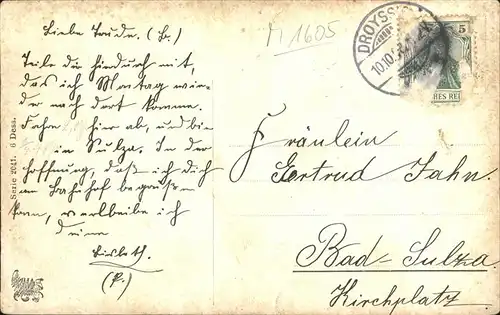 Liebe Trude. (H.)
Teile dir hierdurch mit,
das ich Montag wie-
der nach dort komme.
Fahre hier ab, und bin
in Sulza. In der
Hoffnung, daß ich dich
am Bahnhof begrüßen
kann, verbleibe ich
deine
Lisbeth.
(P.)
M 1605
DROYSSIG
10.10.
5
HES REI
Fräulein
Gertrud Jahn.
Bad-Sulza.
Kirchplatz
Serie 2041. 6 Dess.